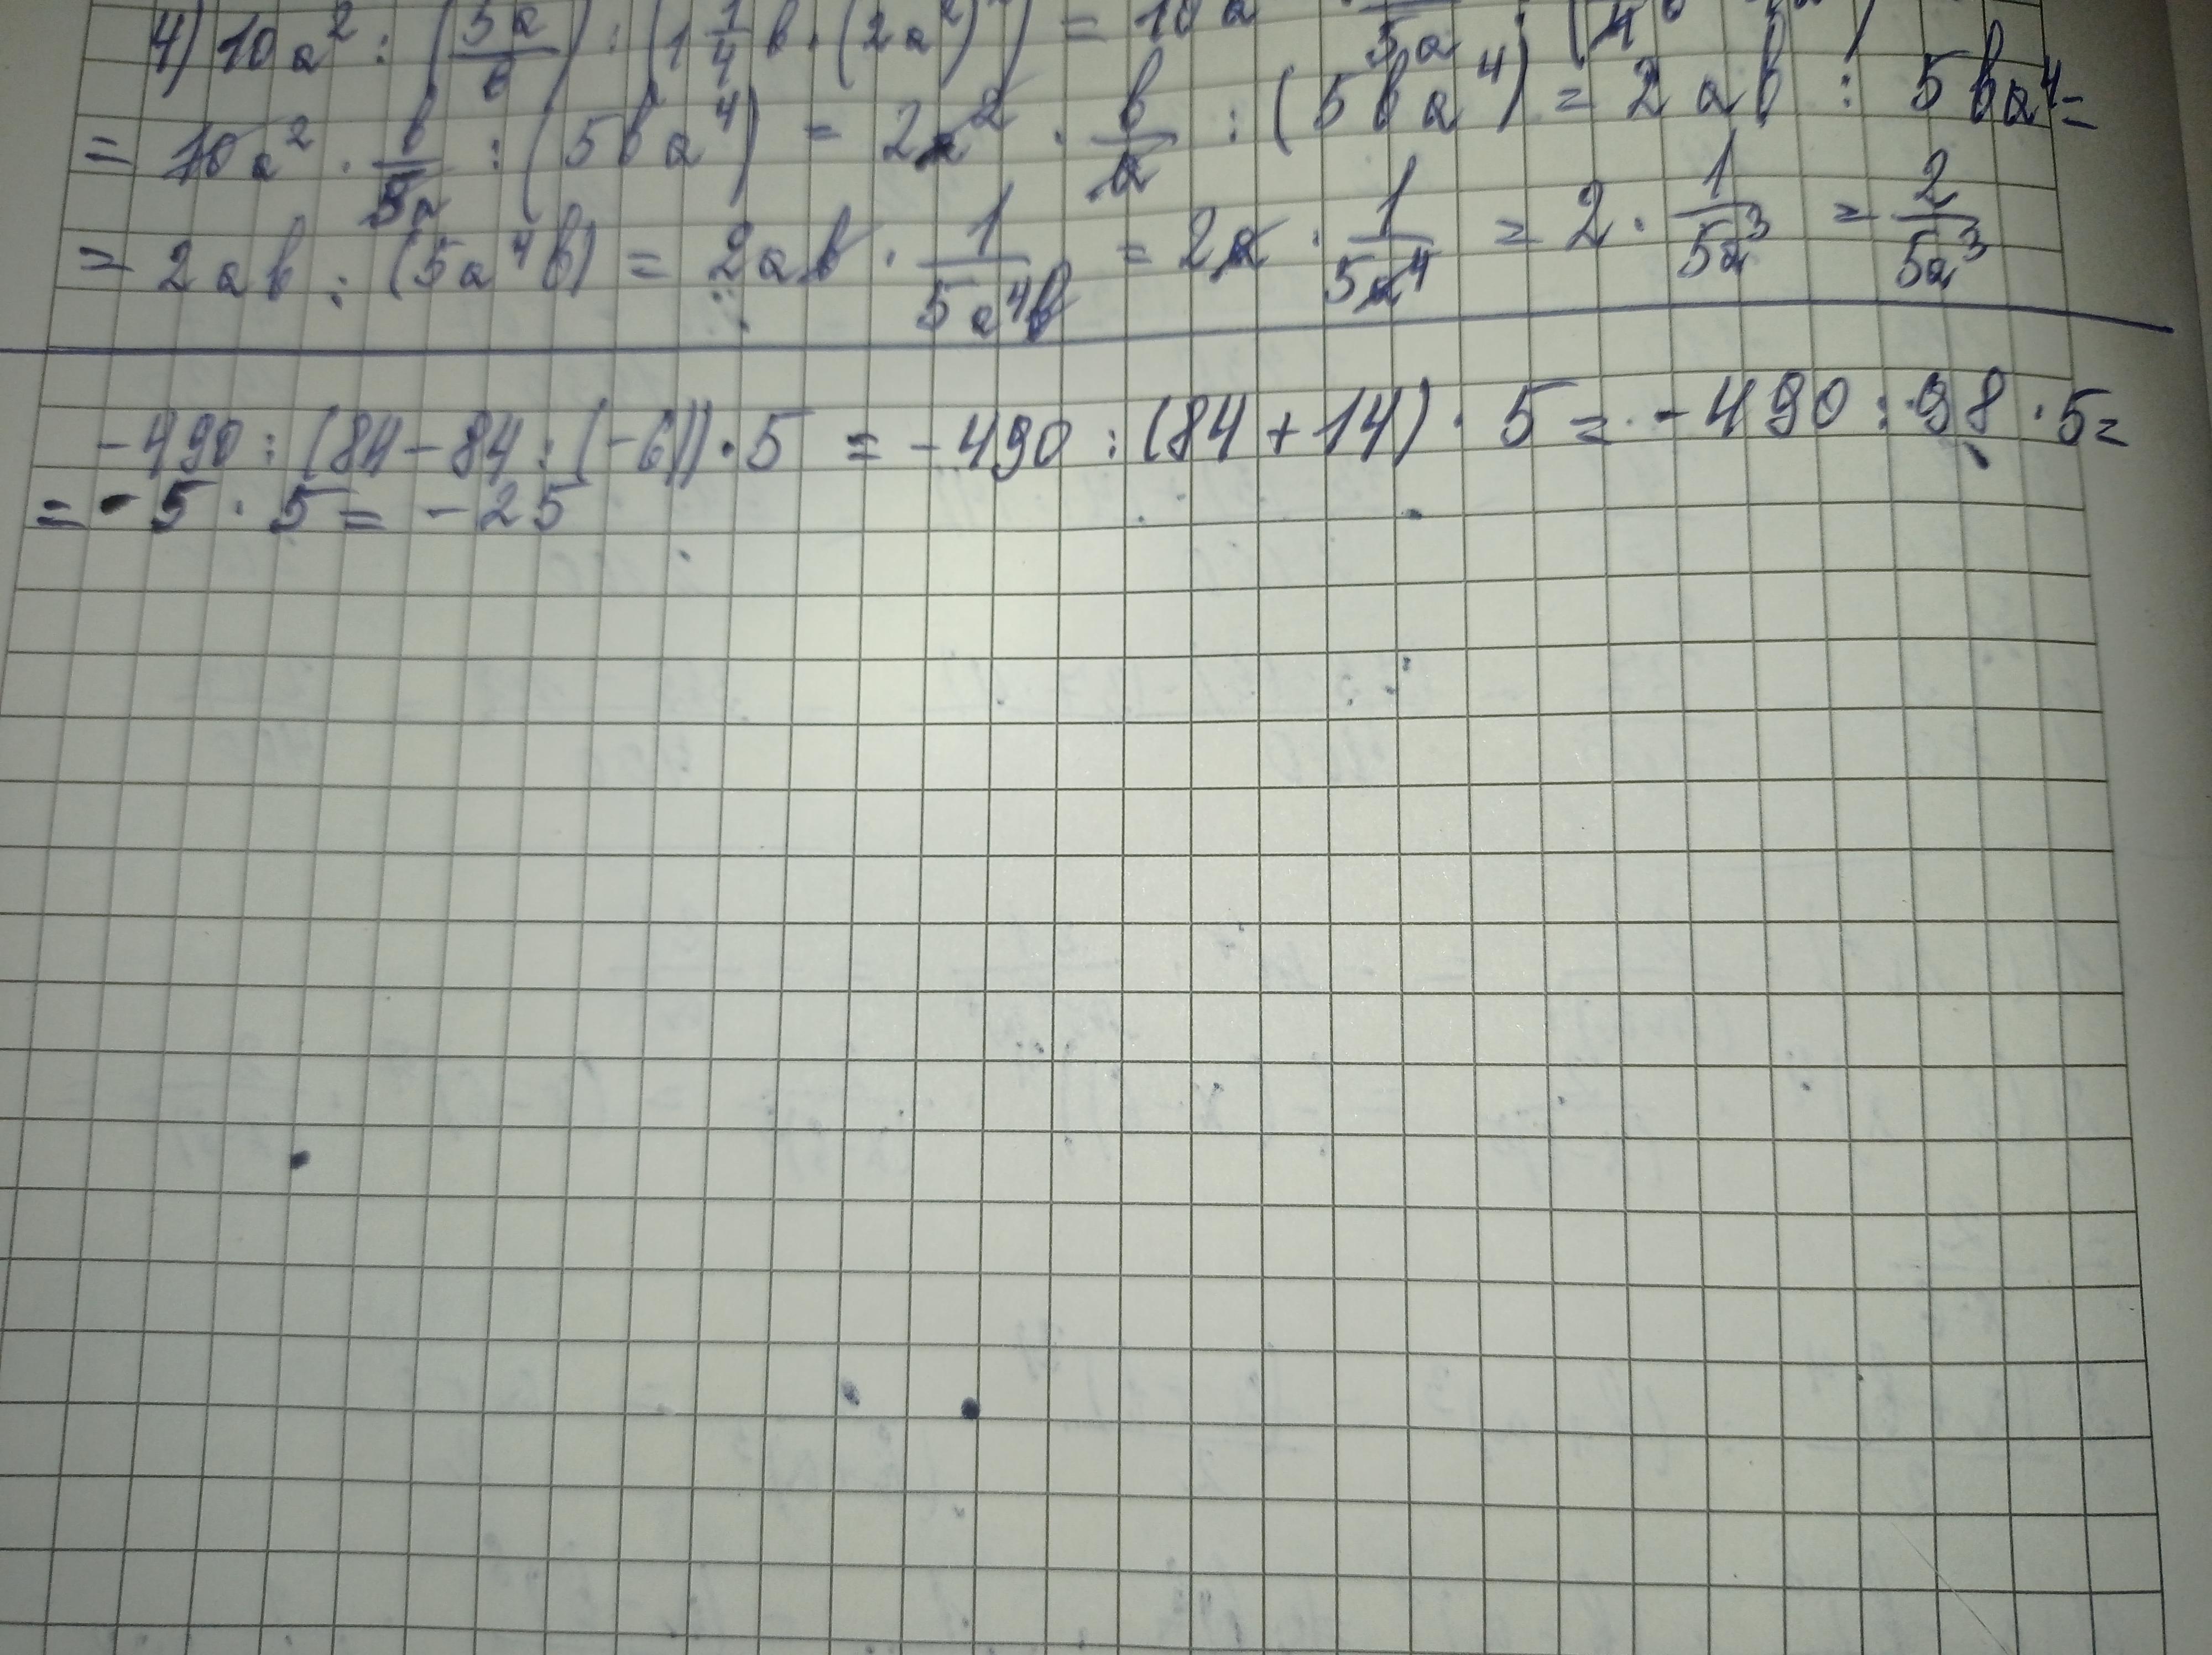 4) 10a² : (5a/b) : (1 1/4 b · (2a²)²) = 10a
= 10a² · b/5a : (5ba⁴) = 2a² · b/a : (5ba⁴) = 2ab : 5ba⁴ =
= 2ab : (5a⁴b) = 2ab · 1/5a⁴b = 2a · 1/5a⁴ = 2 · 1/5a³ = 2/5a³
-490 : (84 - 84 : (-6)) · 5 = -490 : (84 + 14) · 5 = -490 : 98 · 5 =
= -5 · 5 = -25